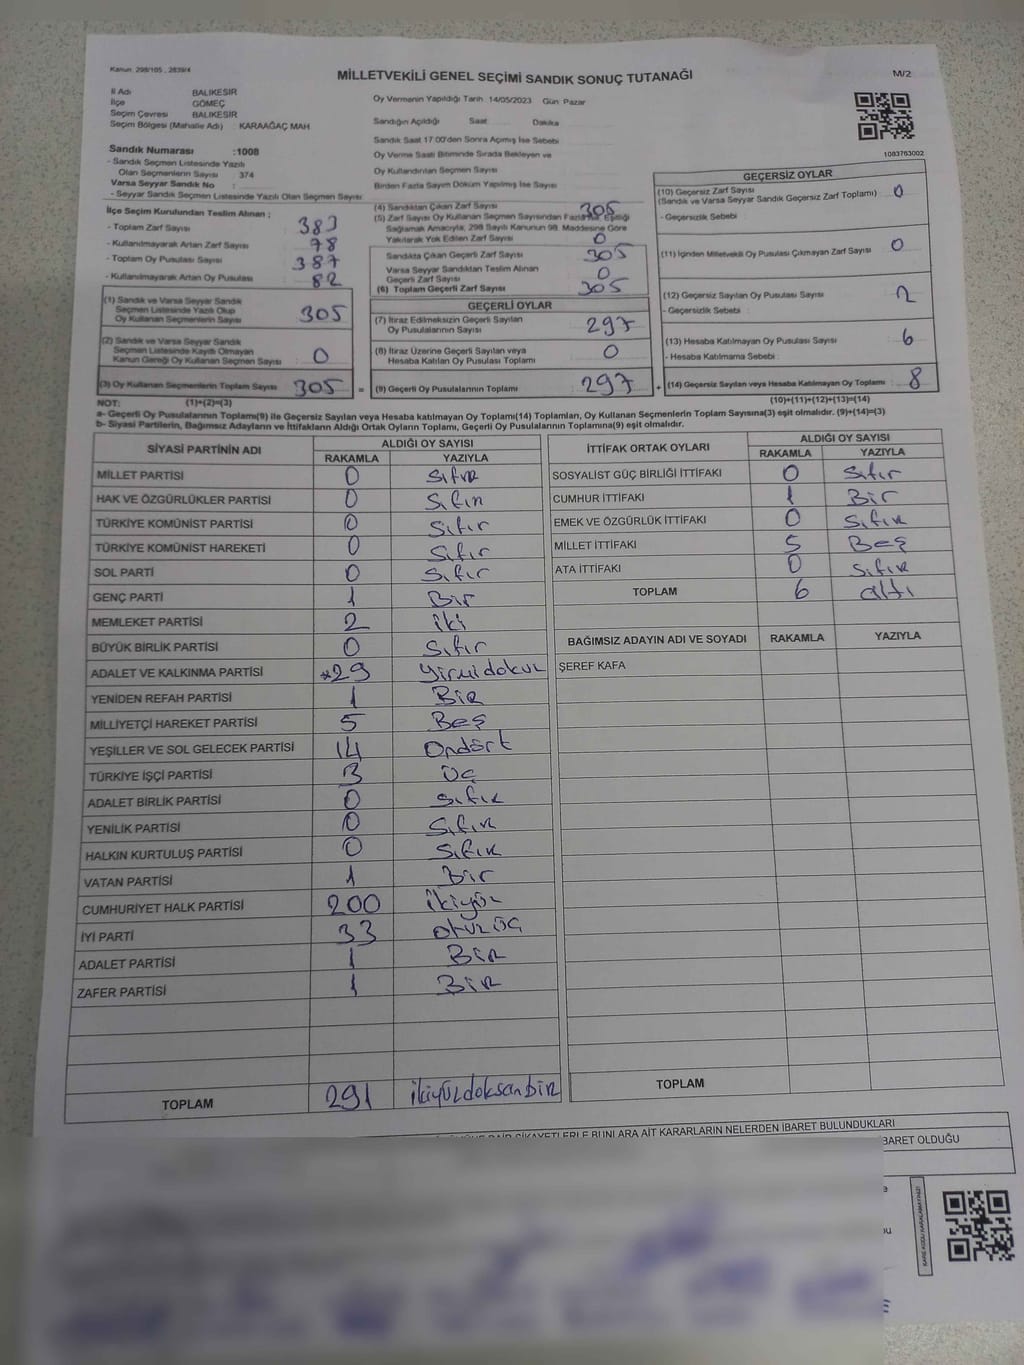 Kanun: 298/105, 2839/4
MİLLETVEKİLİ GENEL SEÇİMİ SANDIK SONUÇ TUTANAĞI
M/2
İl Adı BALIKESİR
İlçe GÖMEÇ
Seçim Çevresi BALIKESİR
Seçim Bölgesi (Mahalle Adı) : KARAAĞAÇ MAH
Sandık Numarası :1008
- Sandık Seçmen Listesinde Yazılı
Olan Seçmenlerin Sayısı : 374
Varsa Seyyar Sandık No :
- Seyyar Sandık Seçmen Listesinde Yazılı Olan Seçmen Sayısı:
Oy Vermenin Yapıldığı Tarih :14/05/2023 Gün: Pazar
Sandığın Açıldığı Saat Dakika
Sandık Saat 17:00'den Sonra Açmış İse Sebebi
Oy Verme Saati Bitiminde Sırada Bekleyen ve
Oy Kullandırılan Seçmen Sayısı
Birden Fazla Sayım Döküm Yapılmış İse Sayısı
1083763002
İlçe Seçim Kurulundan Teslim Alınan ;
- Toplam Zarf Sayısı 383
- Kullanılmayarak Artan Zarf Sayısı 78
- Toplam Oy Pusulası Sayısı 387
- Kullanılmayarak Artan Oy Pusulası 82
(1) Sandık ve Varsa Seyyar Sandık
Seçmen Listesinde Yazılı Olup
Oy Kullanan Seçmenlerin Sayısı 305
(2) Sandık ve Varsa Seyyar Sandık
Seçmen Listesinde Kayıtlı Olmayan
Kanun Gereği Oy Kullanan Seçmen Sayısı 0
(3) Oy Kullanan Seçmenlerin Toplam Sayısı 305 =
(4) Sandıktan Çıkan Zarf Sayısı 305
(5) Zarf Sayısı Oy Kullanan Seçmen Sayısından Fazla İse, Eşitliği
Sağlamak Amacıyla, 298 Sayılı Kanunun 98. Maddesine Göre
Yakılarak Yok Edilen Zarf Sayısı 0
Sandıkta Çıkan Geçerli Zarf Sayısı 305
Varsa Seyyar Sandıktan Teslim Alınan
Geçerli Zarf Sayısı 0
(6) Toplam Geçerli Zarf Sayısı 305
GEÇERLİ OYLAR
(7) İtiraz Edilmeksizin Geçerli Sayılan
Oy Pusulalarının Sayısı 297
(8) İtiraz Üzerine Geçerli Sayılan veya
Hesaba Katılan Oy Pusulası Toplamı 0
(9) Geçerli Oy Pusulalarının Toplamı 297 +
GEÇERSİZ OYLAR
(10) Geçersiz Zarf Sayısı
(Sandık ve Varsa Seyyar Sandık Geçersiz Zarf Toplamı) 0
- Geçersizlik Sebebi :
(11) İçinden Milletvekili Oy Pusulası Çıkmayan Zarf Sayısı 0
(12) Geçersiz Sayılan Oy Pusulası Sayısı 2
- Geçersizlik Sebebi :
(13) Hesaba Katılmayan Oy Pusulası Sayısı 6
- Hesaba Katılmama Sebebi :
(14) Geçersiz Sayılan veya Hesaba Katılmayan Oy Toplamı 8
NOT: (1)+(2)=(3) (10)+(11)+(12)+(13)=(14)
a- Geçerli Oy Pusulalarının Toplamı(9) ile Geçersiz Sayılan veya Hesaba katılmayan Oy Toplamı(14) Toplamları, Oy Kullanan Seçmenlerin Toplam Sayısına(3) eşit olmalıdır. (9)+(14)=(3)
b- Siyasi Partilerin, Bağımsız Adayların ve İttifakların Aldığı Ortak Oyların Toplamı, Geçerli Oy Pusulalarının Toplamına(9) eşit olmalıdır.
SİYASİ PARTİNİN ADI ALDIĞI OY SAYISI
RAKAMLA YAZIYLA
MİLLET PARTİSİ 0 Sıfır
HAK VE ÖZGÜRLÜKLER PARTİSİ 0 Sıfır
TÜRKİYE KOMÜNİST PARTİSİ 0 Sıfır
TÜRKİYE KOMÜNİST HAREKETİ 0 Sıfır
SOL PARTİ 0 Sıfır
GENÇ PARTİ 1 Bir
MEMLEKET PARTİSİ 2 iki
BÜYÜK BİRLİK PARTİSİ 0 Sıfır
ADALET VE KALKINMA PARTİSİ *29 Yirmidokuz
YENİDEN REFAH PARTİSİ 1 Bir
MİLLİYETÇİ HAREKET PARTİSİ 5 Beş
YEŞİLLER VE SOL GELECEK PARTİSİ 14 Ondört
TÜRKİYE İŞÇİ PARTİSİ 3 Üç
ADALET BİRLİK PARTİSİ 0 Sıfır
YENİLİK PARTİSİ 0 Sıfır
HALKIN KURTULUŞ PARTİSİ 0 Sıfır
VATAN PARTİSİ 1 Bir
CUMHURİYET HALK PARTİSİ 200 ikiyüz
İYİ PARTİ 33 otuzüç
ADALET PARTİSİ 1 Bir
ZAFER PARTİSİ 1 Bir
TOPLAM 291 ikiyüzdoksanbir
İTTİFAK ORTAK OYLARI ALDIĞI OY SAYISI
RAKAMLA YAZIYLA
SOSYALİST GÜÇ BİRLİĞİ İTTİFAKI 0 Sıfır
CUMHUR İTTİFAKI 1 Bir
EMEK VE ÖZGÜRLÜK İTTİFAKI 0 Sıfır
MİLLET İTTİFAKI 5 Beş
ATA İTTİFAKI 0 Sıfır
TOPLAM 6 altı
BAĞIMSIZ ADAYIN ADI VE SOYADI RAKAMLA YAZIYLA
ŞEREF KAFA
TOPLAM
ŞİKAYETLERLE BUNLARA AİT KARARLARIN NELERDEN İBARET BULUNDUKLARI
BARET OLDUĞU
KARE KODU KARALAMAYINIZ!